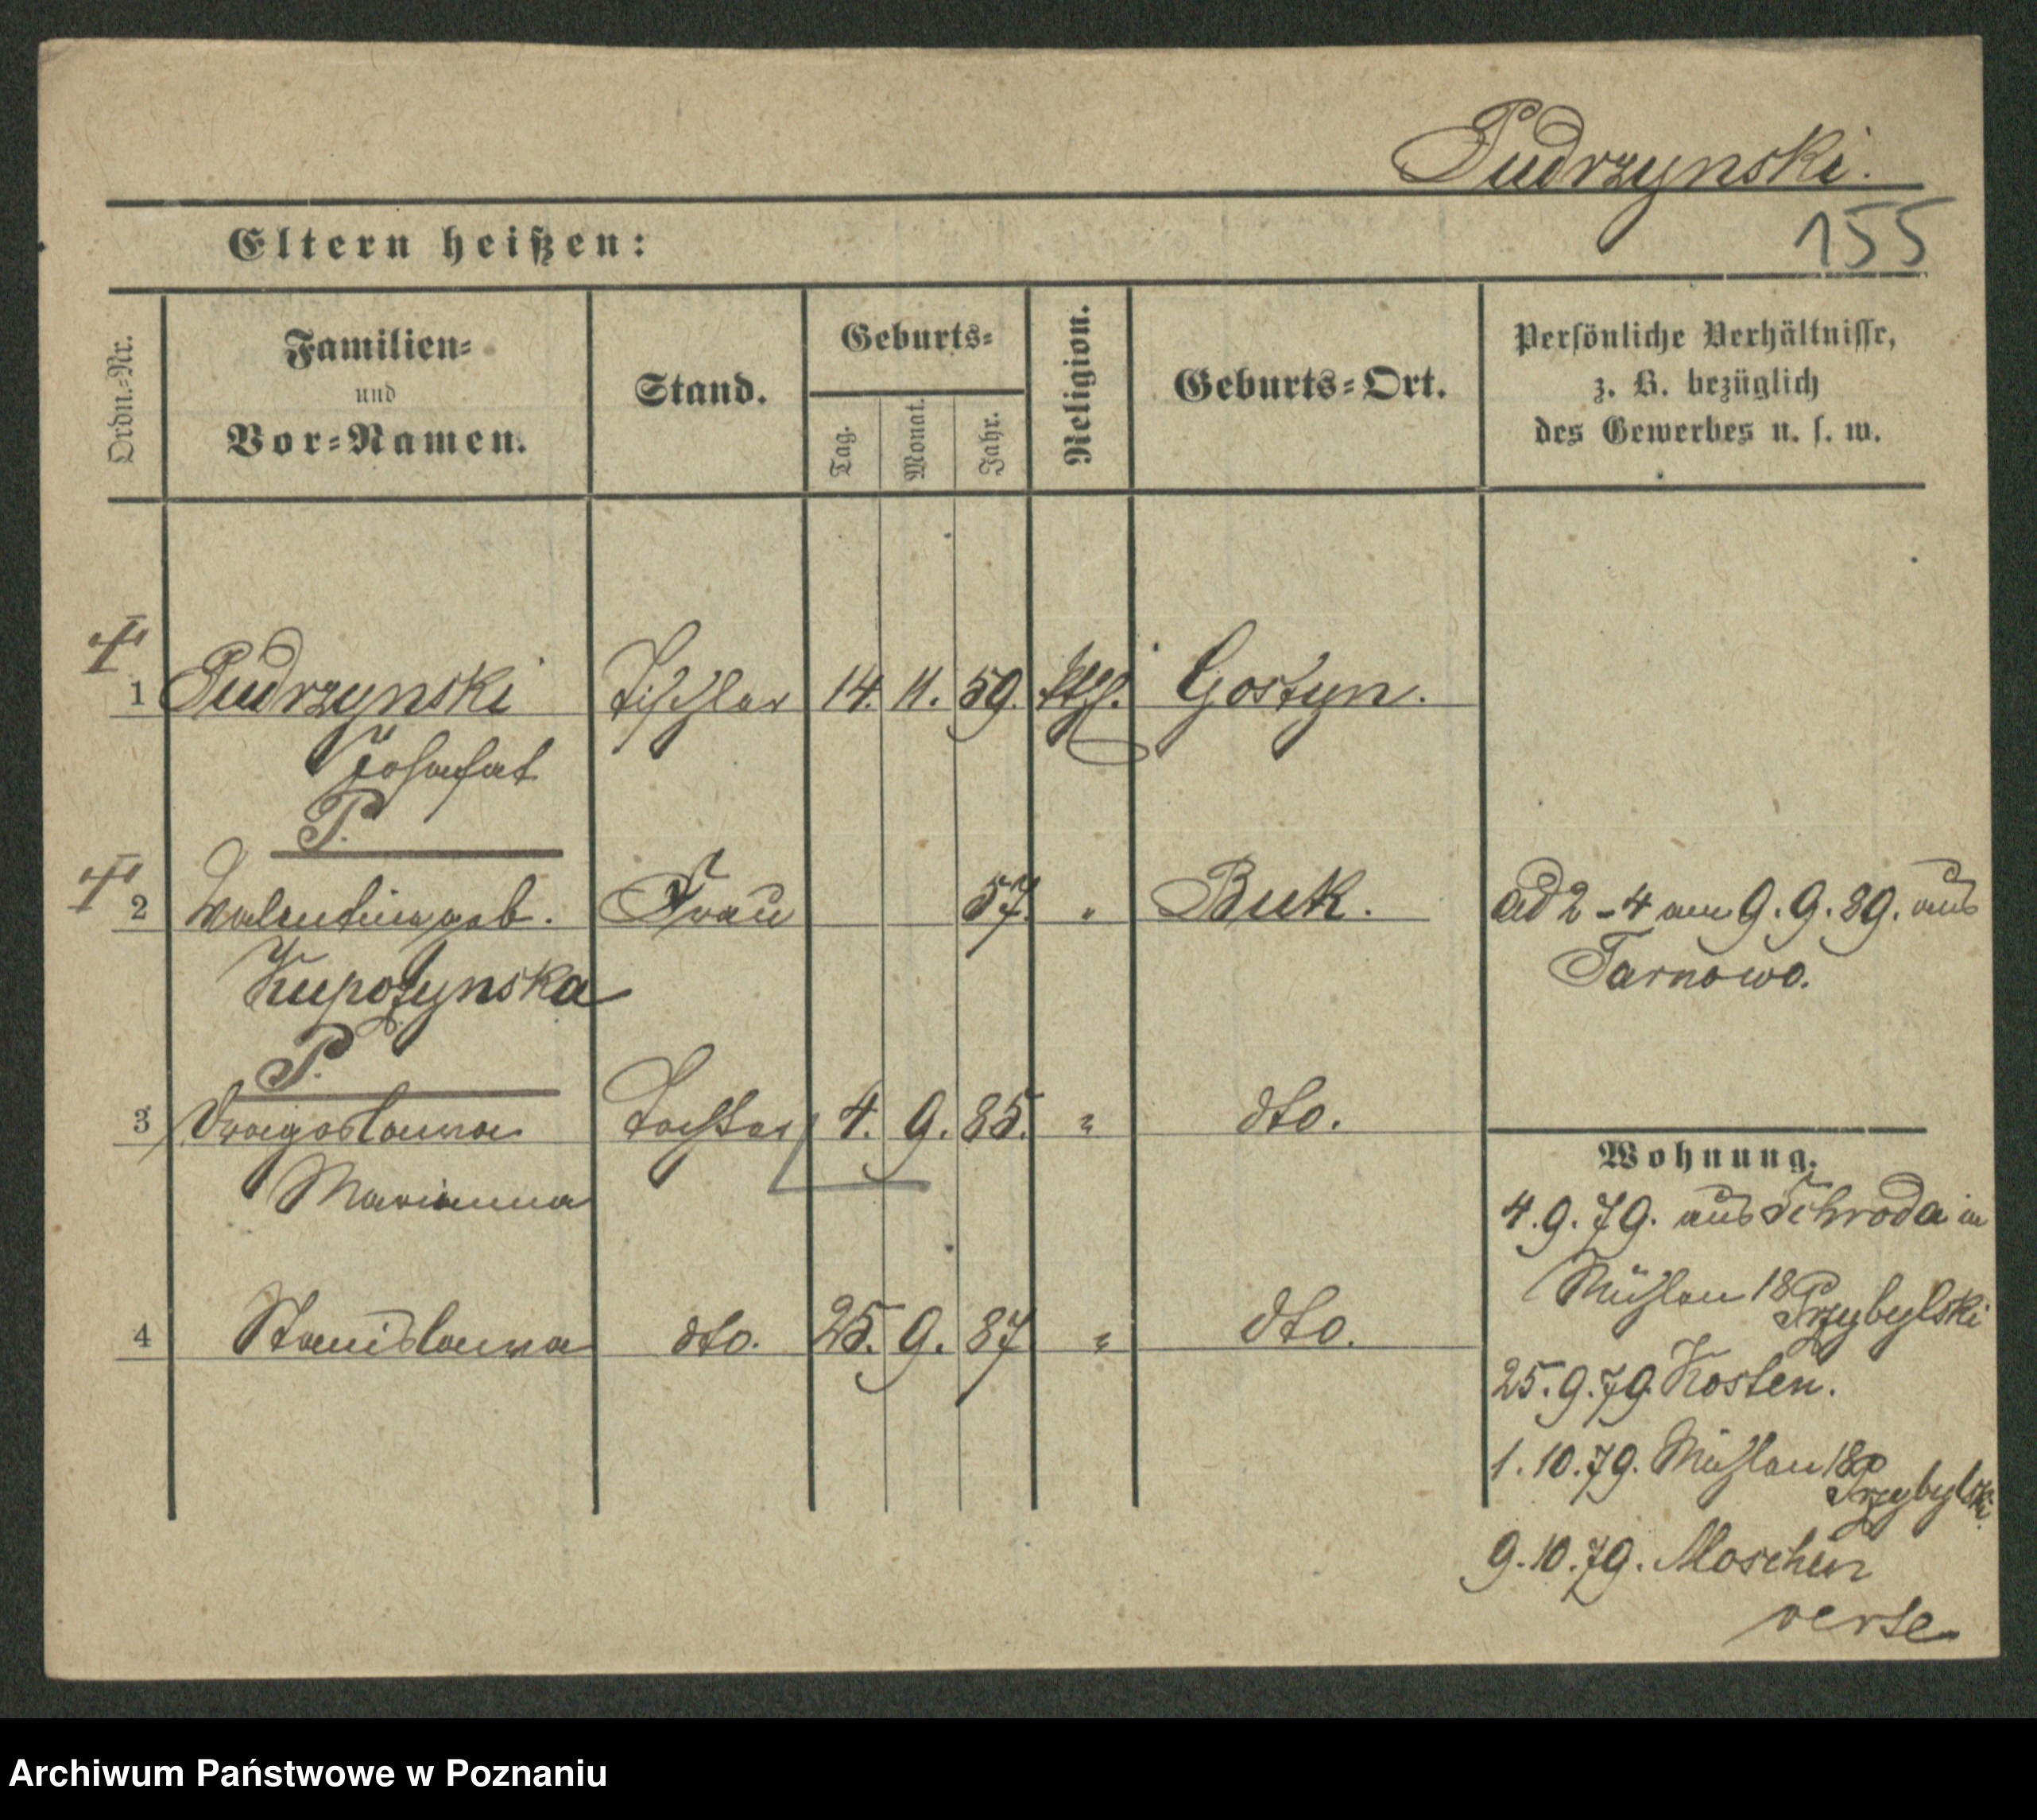 Pudrzynski.
155
Eltern heißen:
Ordn.-Nr.
Familien-
und
Vor-Namen.
Stand.
Geburts-
Tag.
Monat.
Jahr.
Religion.
Geburts-Ort.
Persönliche Verhältnisse,
z. B. bezüglich
des Gewerbes u. s. w.
1 Pudrzynski Tischler 14. 11. 59. kth. Gostyn.
Josafat
P.
2 Valentina geb. Frau 57. " Buk. ad 2-4 am 9.9.89. aus
Tarnowo.
P.
3 Dragoslawa Tochter 4. 9. 85. " dto.
Marianna
4 Stanislawa dto. 25. 9. 87 " dto.
Wohnung.
4.9.79. aus Schroda in
Mühlen 18 Przybylski
25.9.79. Kosten.
1.10.79. Mühlen 18 Przybylski.
9.10.79. Moschin
verte
Archiwum Państwowe w Poznaniu